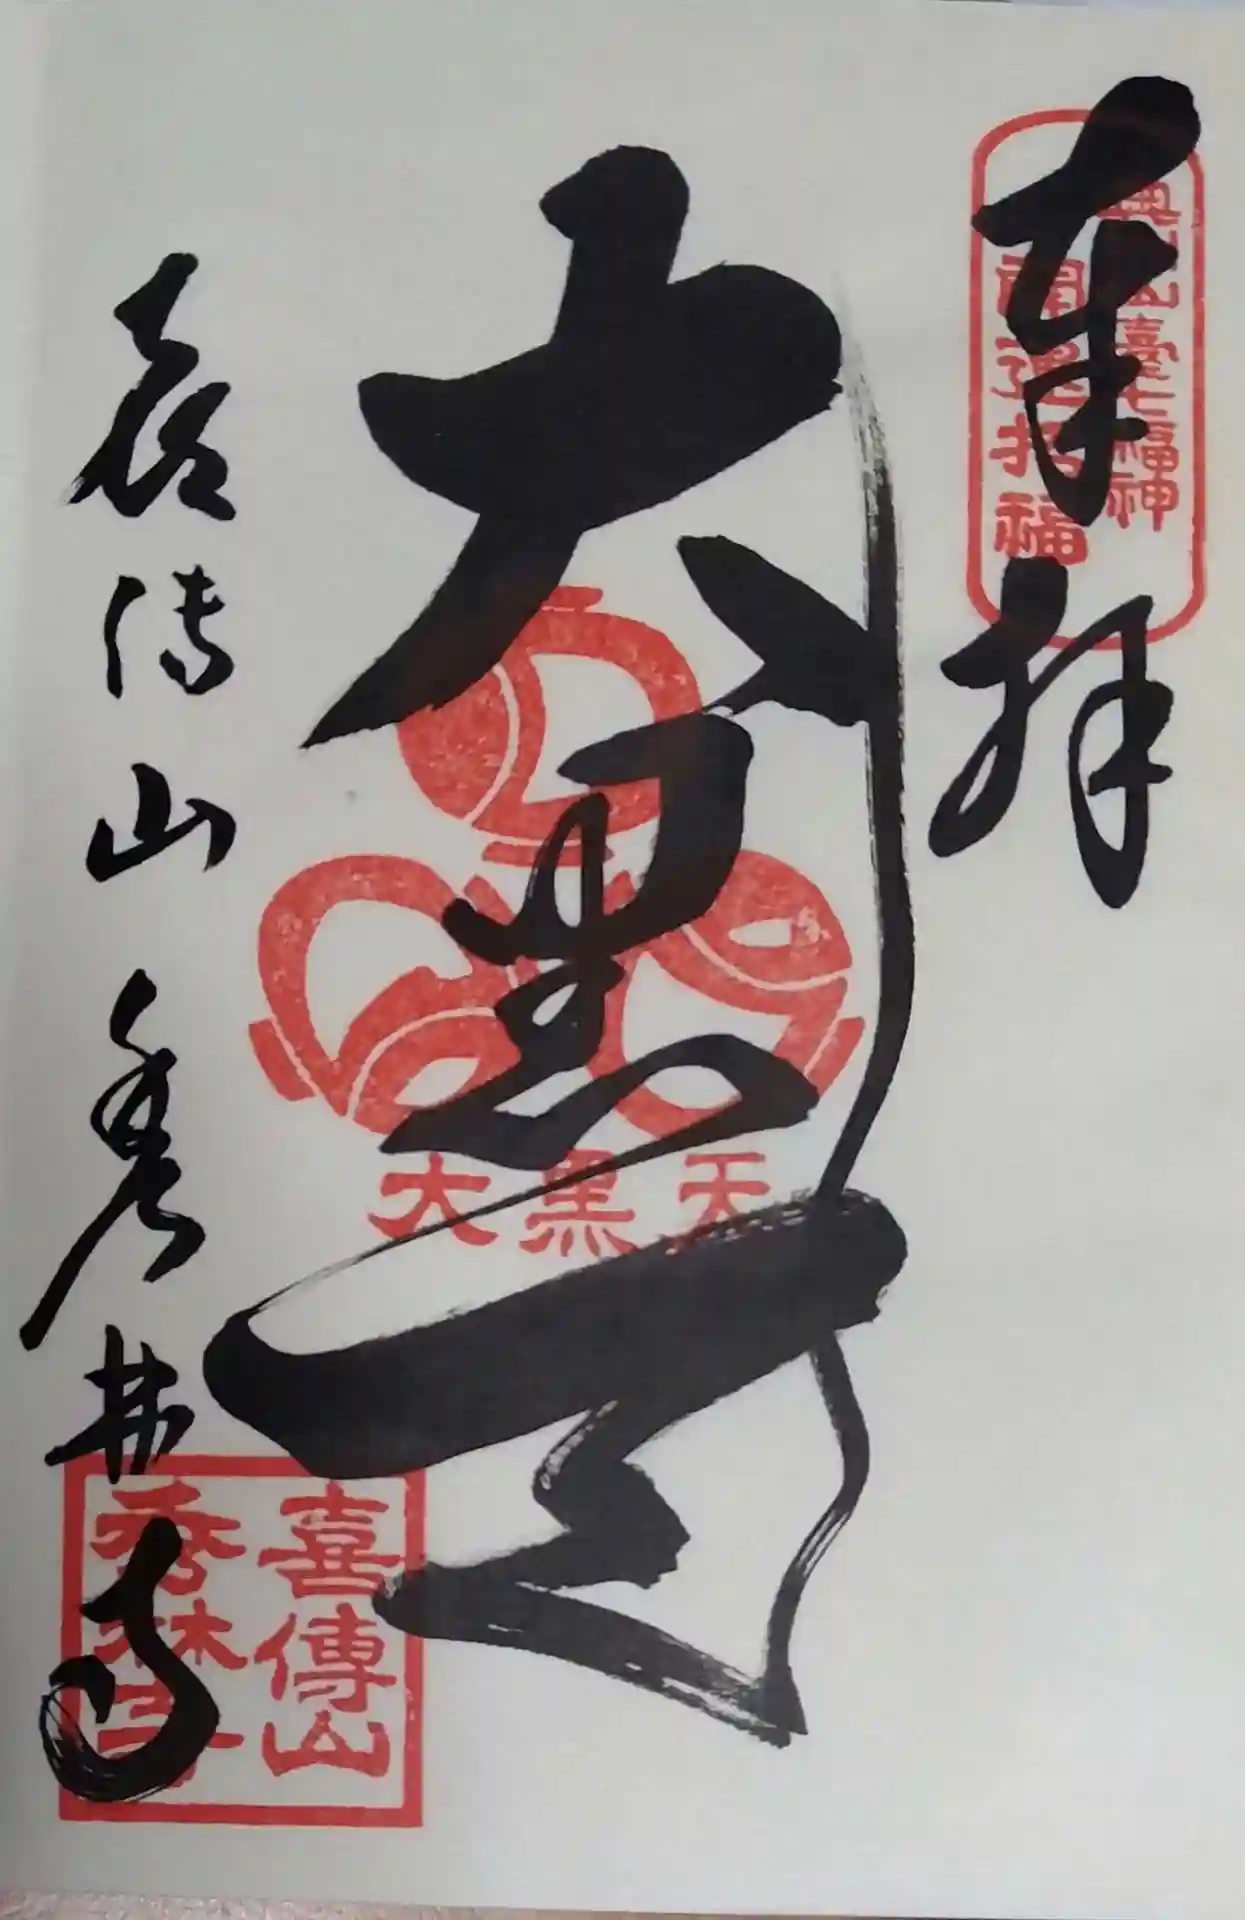 奉拝
奥仙臺七福神
開運招福
大黒天
大黒天
喜傳山
秀林寺
喜傳山秀林寺